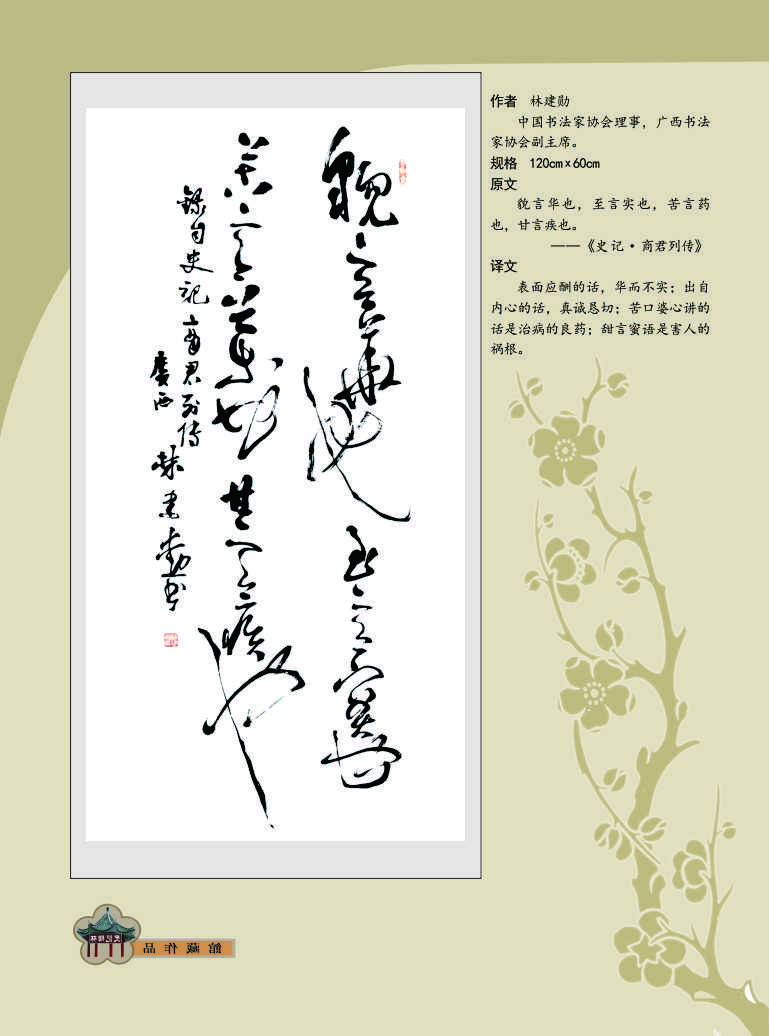 作者 林建勋
中国书法家协会理事，广西书法
家协会副主席。
规格 120cm×60cm
原文
貌言华也，至言实也，苦言药
也，甘言疾也。
——《史记·商君列传》
译文
表面应酬的话，华而不实；出自
内心的话，真诚恳切；苦口婆心讲的
话是治病的良药；甜言蜜语是害人的
祸根。
貌言华也至言实也
苦言药也甘言疾也
錄自史記商君列传
廣西林建勋书
館藏作品